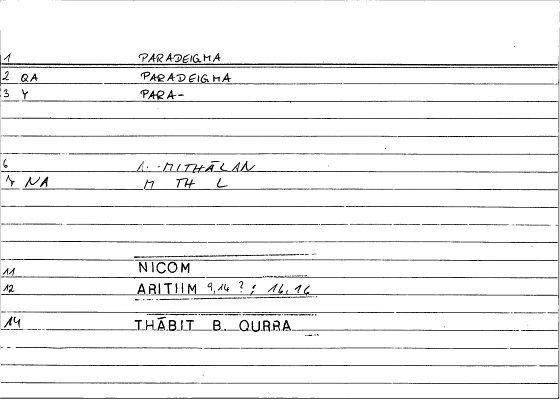 1 PARADEIGMA
2 QA PARADEIGMA
3 Y PARA-
6 A. -MITHĀLAN
7 NA M TH L
11 NICOM
12 ARITIIM 9,14 ? ; 16,16
14 THĀBIT B. QURRA